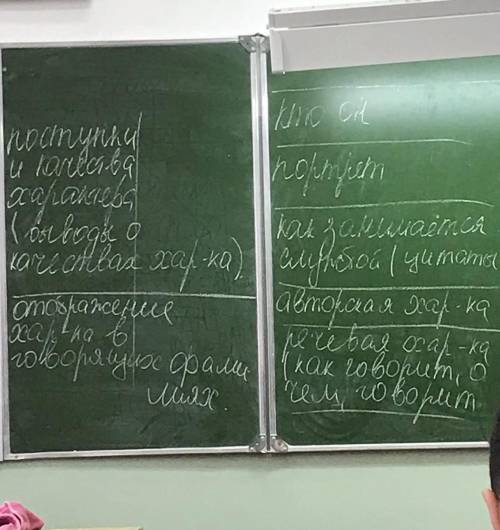 поступки
и качества
характера
(выводы о
качествах хар-ка)
отображение
хар-ка в
говорящих фами
лиях.
кто он
портрет
как занимается
службой (цитаты
авторская хар-ка
речевая хар-ка
(как говорит, о
чем, говорит